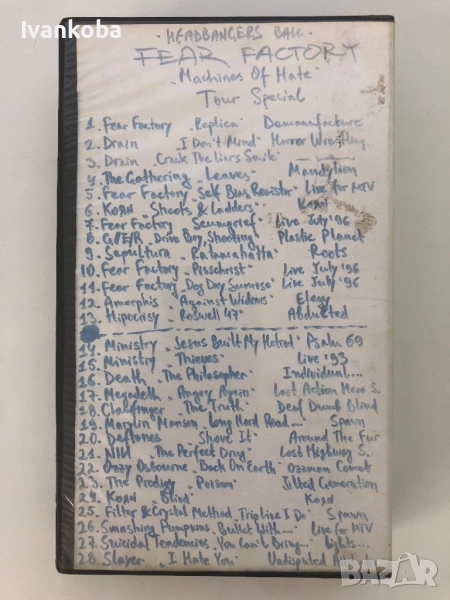 ivankoba
HEADBANGERS BALL
FEAR FACTORY
"Machines Of Hate"
Tour Special
1. Fear Factory "Replica" Demanufacture
2. Drain "I Don't Mind" Horror Wrestling
3. Drain "Crack The Liars Smile"
4. The Gathering "Leaves" Mandylion
5. Fear Factory "Self Bias Resistor" Live for MTV
6. KoЯn "Shoots & Ladders" KoЯn
7. Fear Factory "Scumgrief" Live July '96
8. G/Z/R "Drive Boy, Shooting" Plastic Planet
9. Sepultura "Ratamahatta" Roots
10. Fear Factory "Pisschrist" Live July '96
11. Fear Factory "Dog Day Sunrise" Live July '96
12. Amorphis "Against Widows" Elegy
13. Hipocrisy "Roswell 47" Abducted
14. Ministry "Jesus Built My Hotrod" Psalm 69
15. Ministry "Thieves" Live '93
16. Death "The Philosopher" Individual...
17. Megadeth "Angry Again" Last Action Hero S.
18. Clawfinger "The Truth" Deaf Dumb Blind
19. Marilyn Manson "Long Hard Road..." Spawn
20. Deftones "Shove It" Around The Fur
21. NIИ "The Perfect Drug" Lost Highway S...
22. Ozzy Osbourne "Back On Earth" Ozzman Comet
23. The Prodigy "Poison" Jilted Generation
24. KoЯn "Blind" KoЯn
25. Filter & Crystal Method "Trip Like I Do" Spawn
26. Smashing Pumpkins "Bullet With..." Live for MTV
27. Suicidal Tendencies "You Can't Bring..." Lights...
28. Slayer "I Hate You" Undisputed
BAZAR.BG